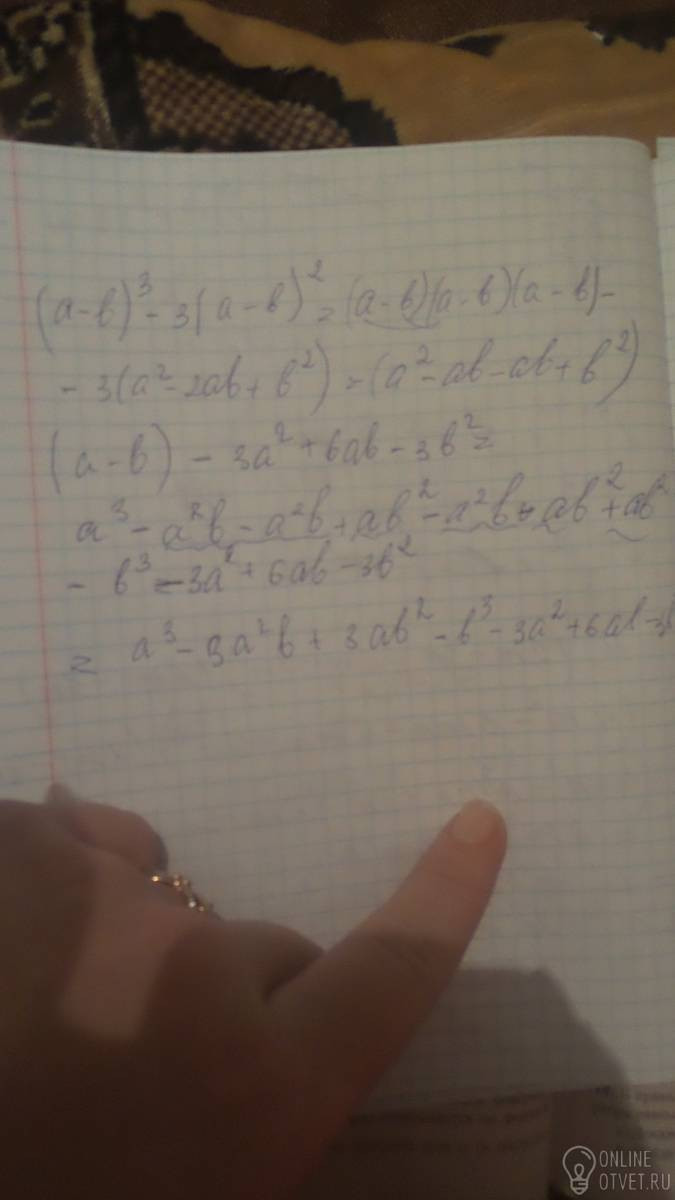 (a-b)³-3(a-b)²=(a-b)(a-b)(a-b)-
-3(a²-2ab+b²)=(a²-ab-ab+b²)
(a-b)-3a²+6ab-3b²=
a³-a²b-a²b+ab²-a²b+ab²+ab²
-b³-3a²+6ab-3b²
= a³-3a²b+3ab²-b³-3a²+6ab-3b
ONLINE
OTVET.RU